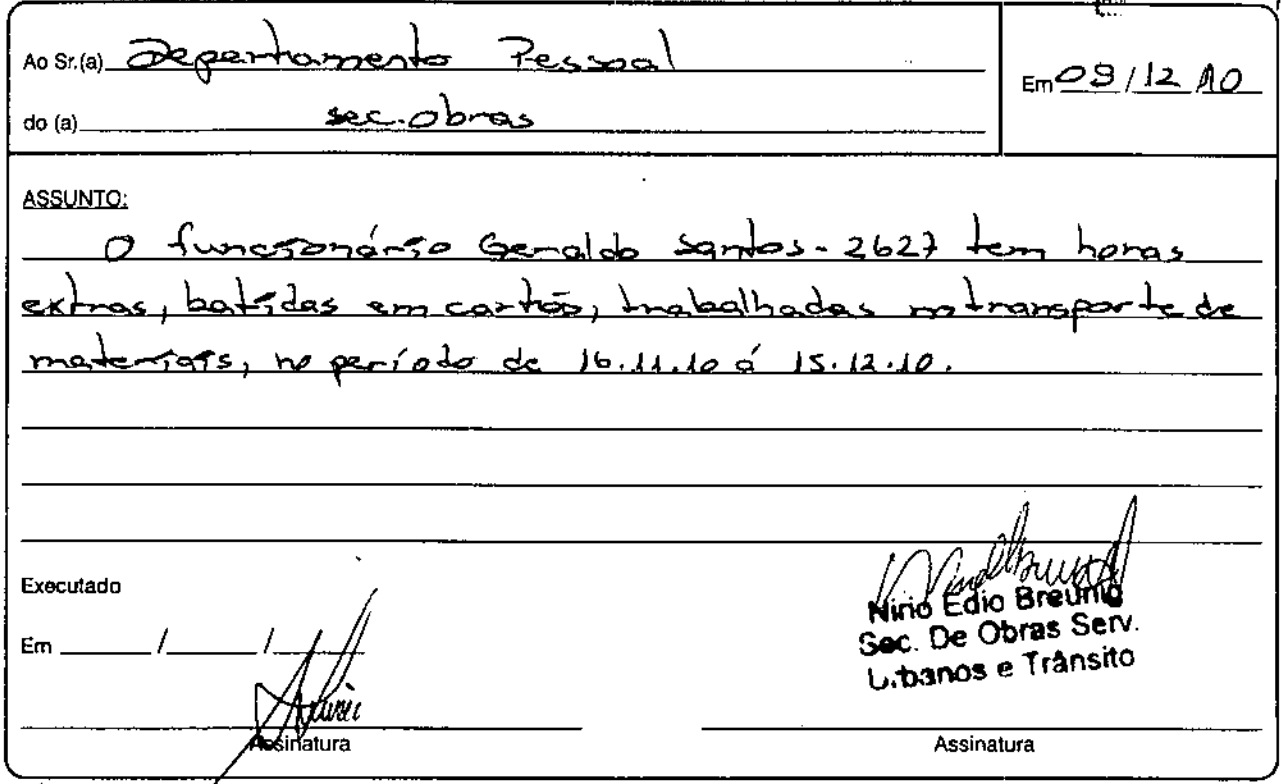 Ao Sr.(a) Departamento Pessoal
do (a) sec. obras
Em 09/12/10
ASSUNTO:
O funcionário Geraldo Santos - 2627 tem horas
extras, batidas em cartão, trabalhadas no transporte de
materiais, no período de 16.11.10 á 15.12.10.
Executado
Em / /
Assinatura
Nirio Edio Breunig
Sec. De Obras Serv.
Urbanos e Trânsito
Assinatura